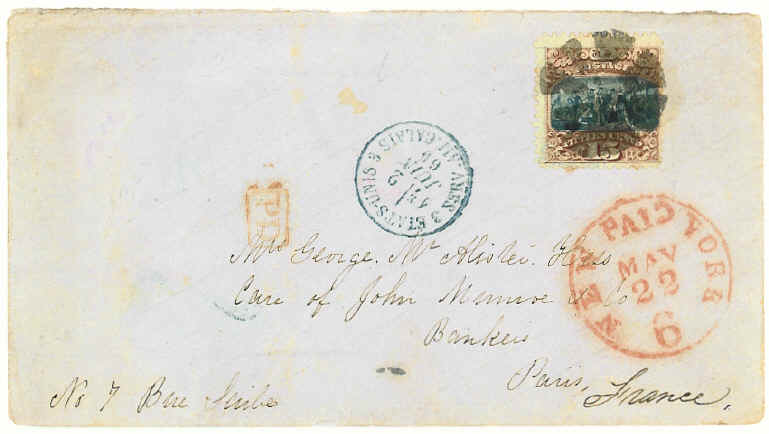 POSTAGE
15
NEW PAID YORK
MAY
22
6
ETATS-UNIS
3
AMB. CALAIS
2
JUIN
69
PD
Mrs George. Mc Alister. Hess
Care of John Munroe & Co
Bankers
Paris, France.
No 7 Rue Scribe